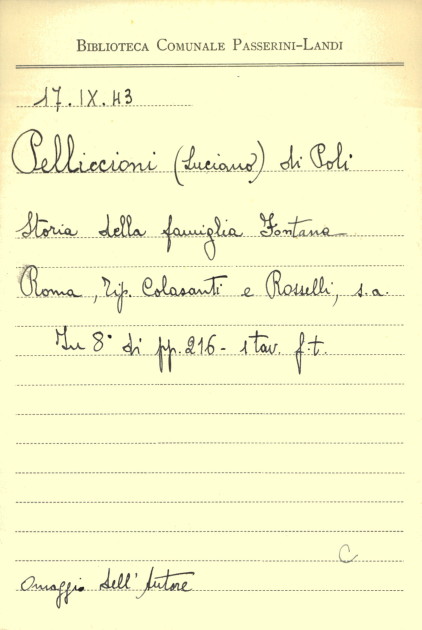 BIBLIOTECA COMUNALE PASSERINI-LANDI
17.IX.43
Pelliccioni (Luciano) di Poli
Storia della famiglia Fontana
Roma, Tip. Colasanti e Rosselli, s.a.
In 8° di pp. 216 - 1 tav. f.t.
C
Omaggio dell'Autore